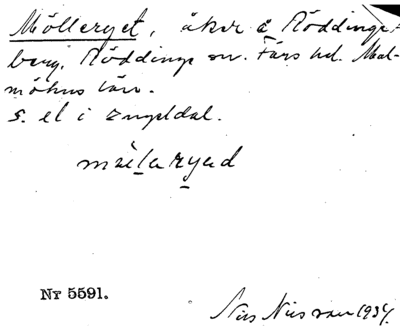 Mölleryet, åker å Röddinge-
berg, Röddinge sn. Färs hd. Mal-
möhus län.
S. el i
Nr 5591.
Nils Nilsson 1934.